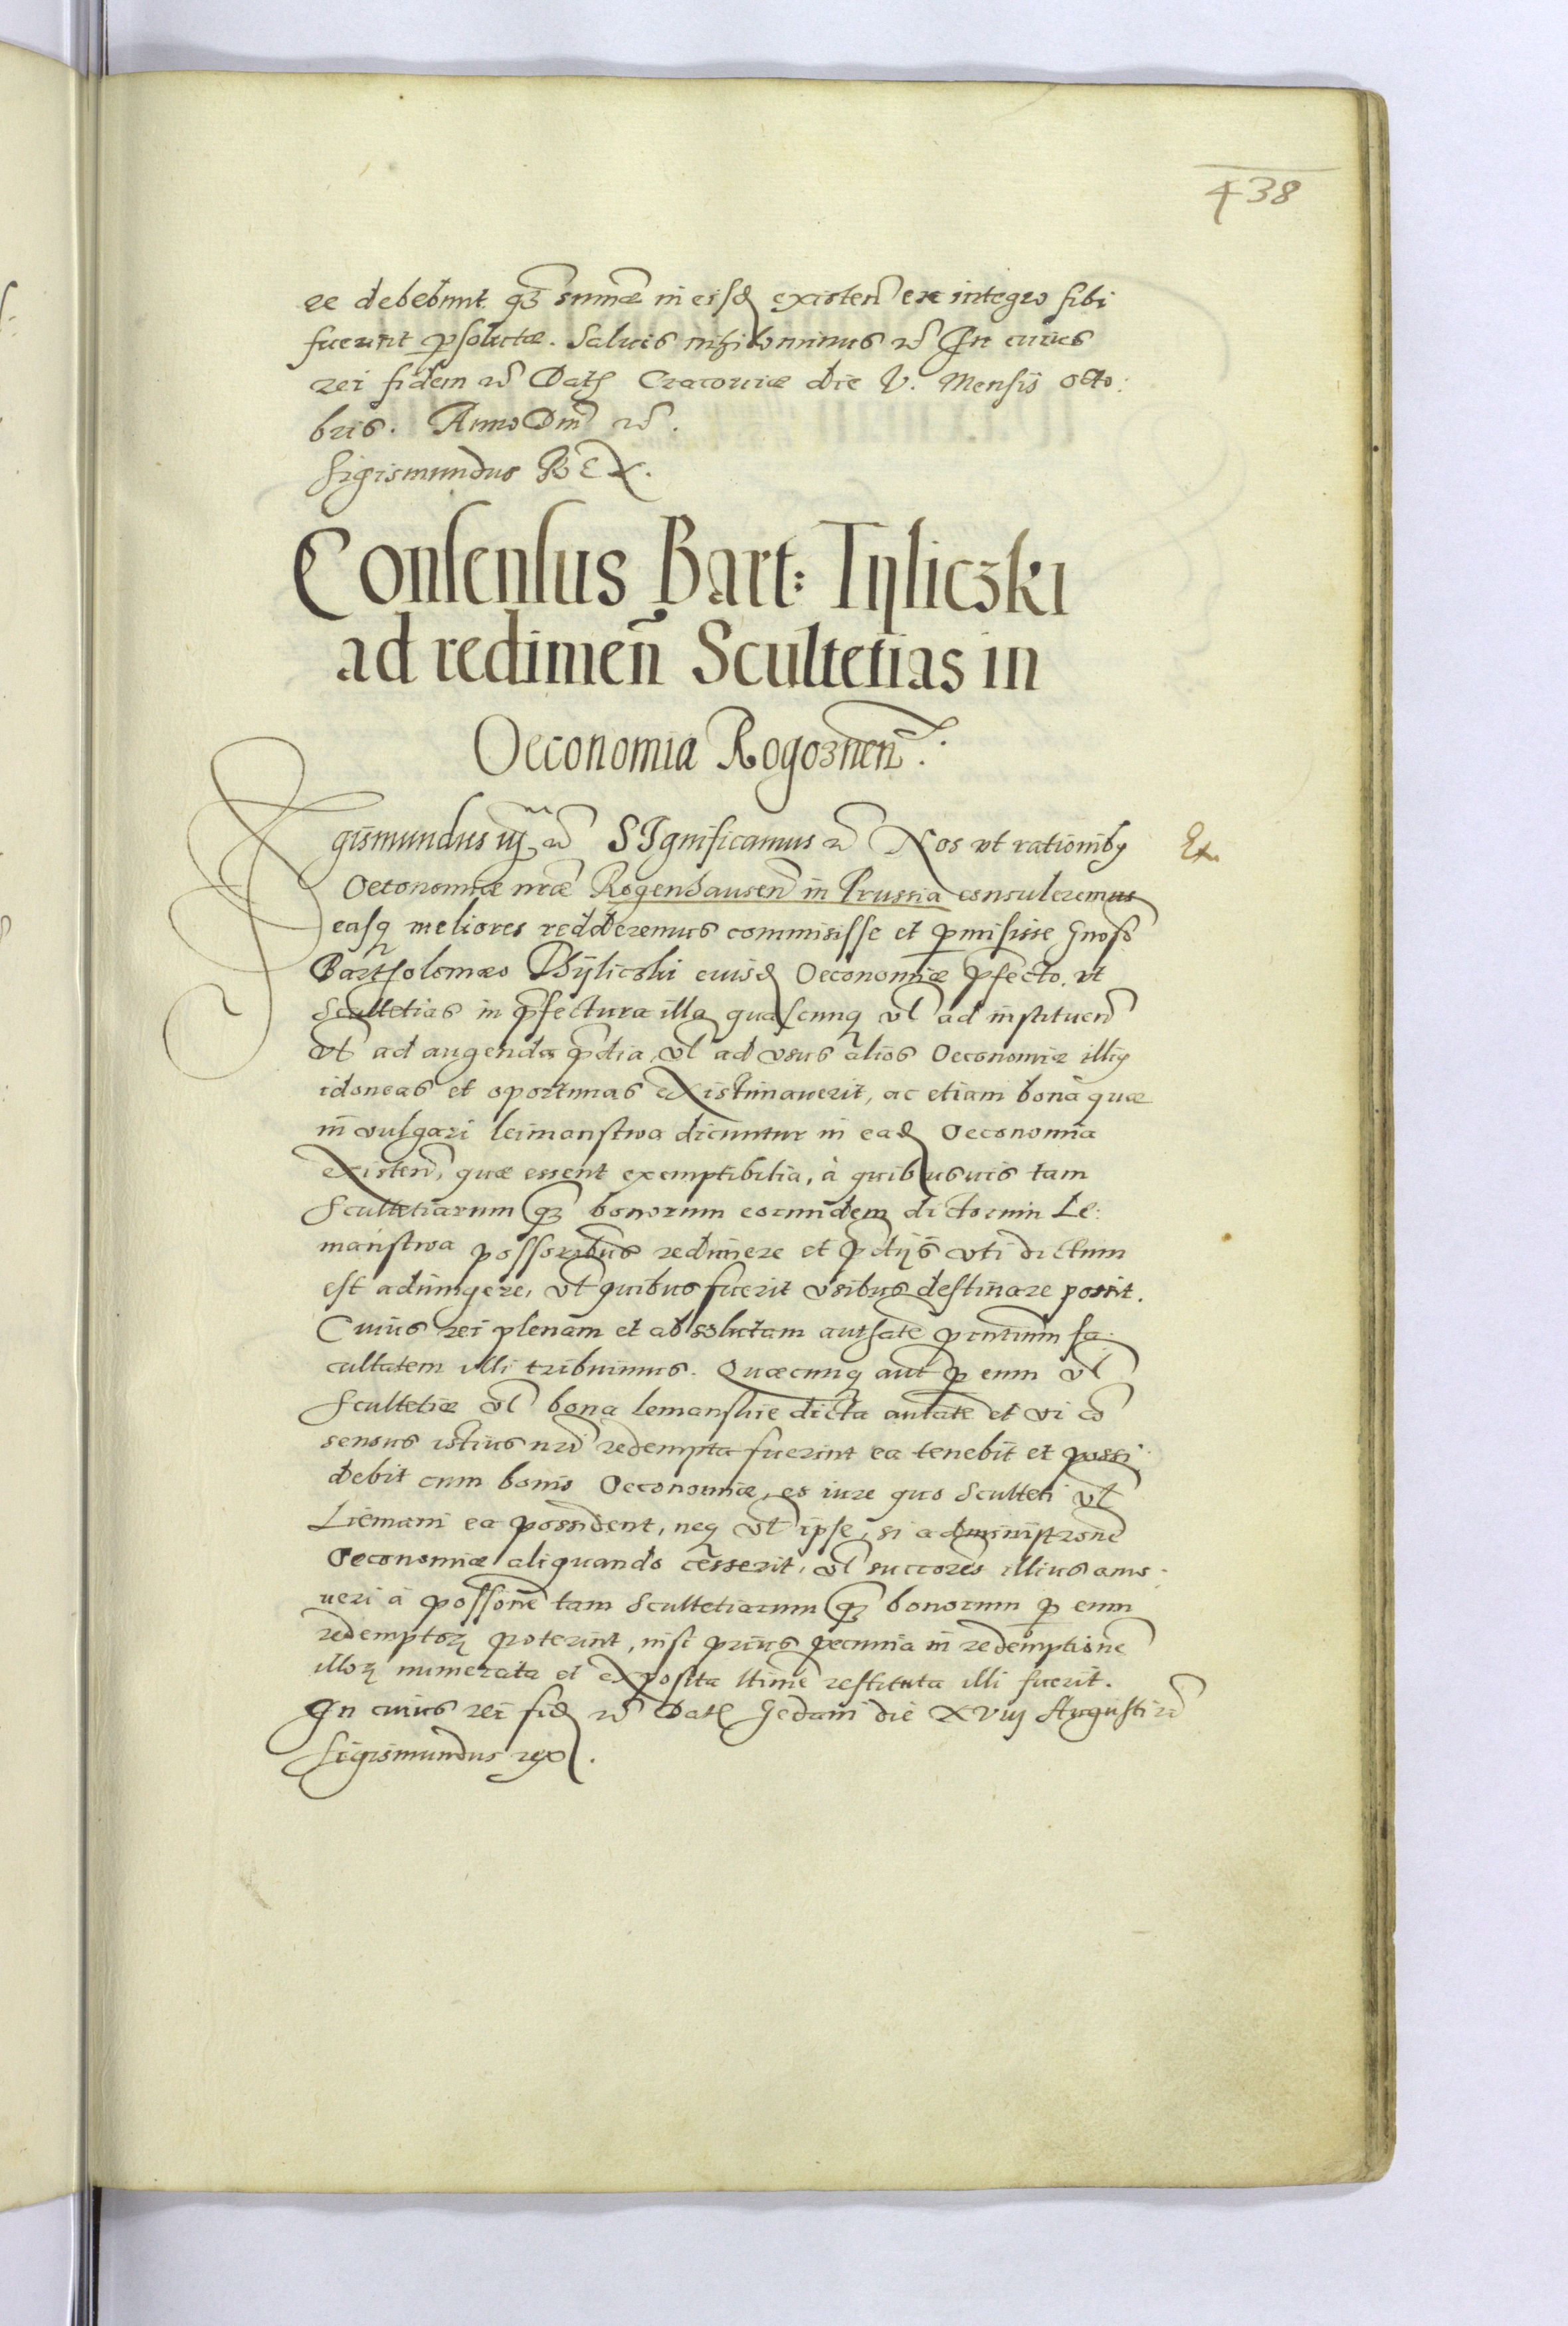 438
re debebunt. qz summae in eisd existen̄ ex integro sibi
fuerint psolutae. Salvis nihilominus rc̃ In cuius
rei fidem rc̃ Dat Cracoviae die V. Mensis Octo:
bris. Anno Dnī rc̃.
Sigismundus REX.
Consensus Bart: Tyliczki
ad redimen̄ Scultetias in
Oeconomia Rogoznen̄.
Sigismundus iij rc̃ SIgnificamus rc̃ Nos vt rationibꝫ
Oeconomiae nrae Rogenhausen̄ in Prussia consuleremus
easqꝫ meliores redderemus commisisse et pmisisse Gnoso
Bartholomaeo Thyliczki euisd Oeconomiae pfecto, vt
Scultetias in pfectura illa quascunqꝫ vl ad instituen̄
vl ad augenda pdia, vl ad vsus alios Oeconomiae illiꝰ
idoneas et oportunas existimaverit, ac etiam bona quae
in vulgari leimanstwa dicuntur in ead Oeconomia
existen̄, quae essent exemptibilia, à quibusuis tam
Scultetiarum qꝫ bonorum eorundem dictorum Le:
manstwa possoribus redimere et pdijs vti dictum
est adiungere, vl quibus fuerit vsibus destinare possit.
Cuius rei plenam et absolutam authatē pntium fa:
cultatem illi tribuimus. Quaecunqꝫ aut p eum vl
Scultetiae vl bona lemanstwe dicta autatē et vi cō
sensus istius nrī redempta fuerint ea tenebit et possi
debit cum bonis Oeconomiae, eo iure quo Sculteti vl
Liemani ea possident, neqꝫ vl ipse, si administronē
Oeconomiae aliquando cesserit, vl succorēs illius amo:
ueri à possionē tam Scultetiarum qꝫ bonorum p eum
redemptorꝫ poterint, nisi prius pecunia in redemptionē
illorꝫ numerata et exposita ltimē restituta illi fuerit.
In cuius rei fid rc̃ Dat Gedani die XViij Augusti rc̃
Sigismundus rex.